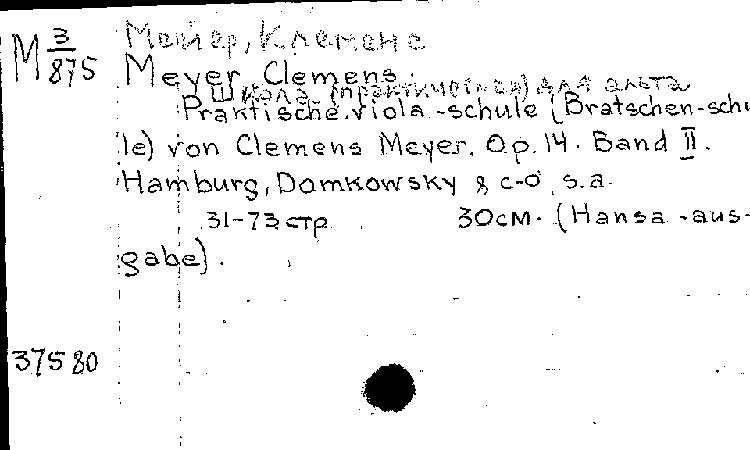 М 3/875
Мейер, Клеменс
Meyer, Clemens.
Школа (практическая) для альта
Praktische viola-schule (Bratschen-schu
le) von Clemens Meyer. Op. 14. Band II.
Hamburg, Domkowsky & c-o, s.a.
31-73 стр. 30см. (Hansa-aus-
gabe).
37580